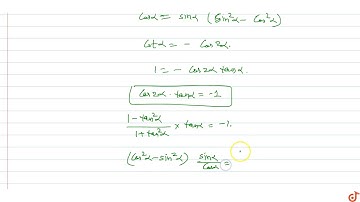 Cosα = sinα (Sin²α - Cos²α)
Cotα = - Cos2α.
1 = - Cos2α tanα.
Cos2α · tanα = -1
1 - tan²α / 1 + tan²α × tanα = -1.
(Cos²α - sin²α) sinα / Cosα =